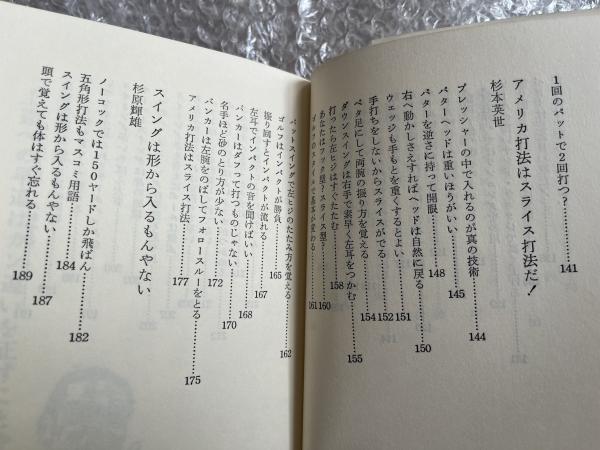 1回のパットで2回打つ?……141
アメリカ打法はスライス打法だ!
杉本英世
プレッシャーの中で入れるのが真の技術……144
パターヘッドは重いほうがいい……145
パターを逆さに持って開眼……148
右へ動かしさえすればヘッドは自然に戻る……150
ウェッジも手もとを重くするとよい……151
手打ちをしないからスライスがでる……152
ベタ足にして両腕の振り方を覚える……154
ダウンスイングは右手で素早く左耳をつかむ……155
打ったら左ヒジはすぐたたむ……158
あなたはフック型?スライス型?……160
ゴルフのスタイルで基本は変わる……161
パタースイングで左ヒジのたたみ方を覚える……162
ゴルフはインパクトが勝負……165
振り回すとインパクトが流れる……167
左耳でインパクトの音を聞けばいい……168
バンカーはダフって打つものじゃない……170
名手ほど砂のとり方が少ない……172
バンカーは左腕をのばしてフォロースルーをとる……175
アメリカ打法はスライス打法……177
スイングは形から入るもんやない
杉原輝雄
ノーコックでは150ヤードしか飛ばん……182
五角形打法もマスコミ用語……184
スイングは形から入るもんやない……187
頭で覚えても体はすぐ忘れる……189